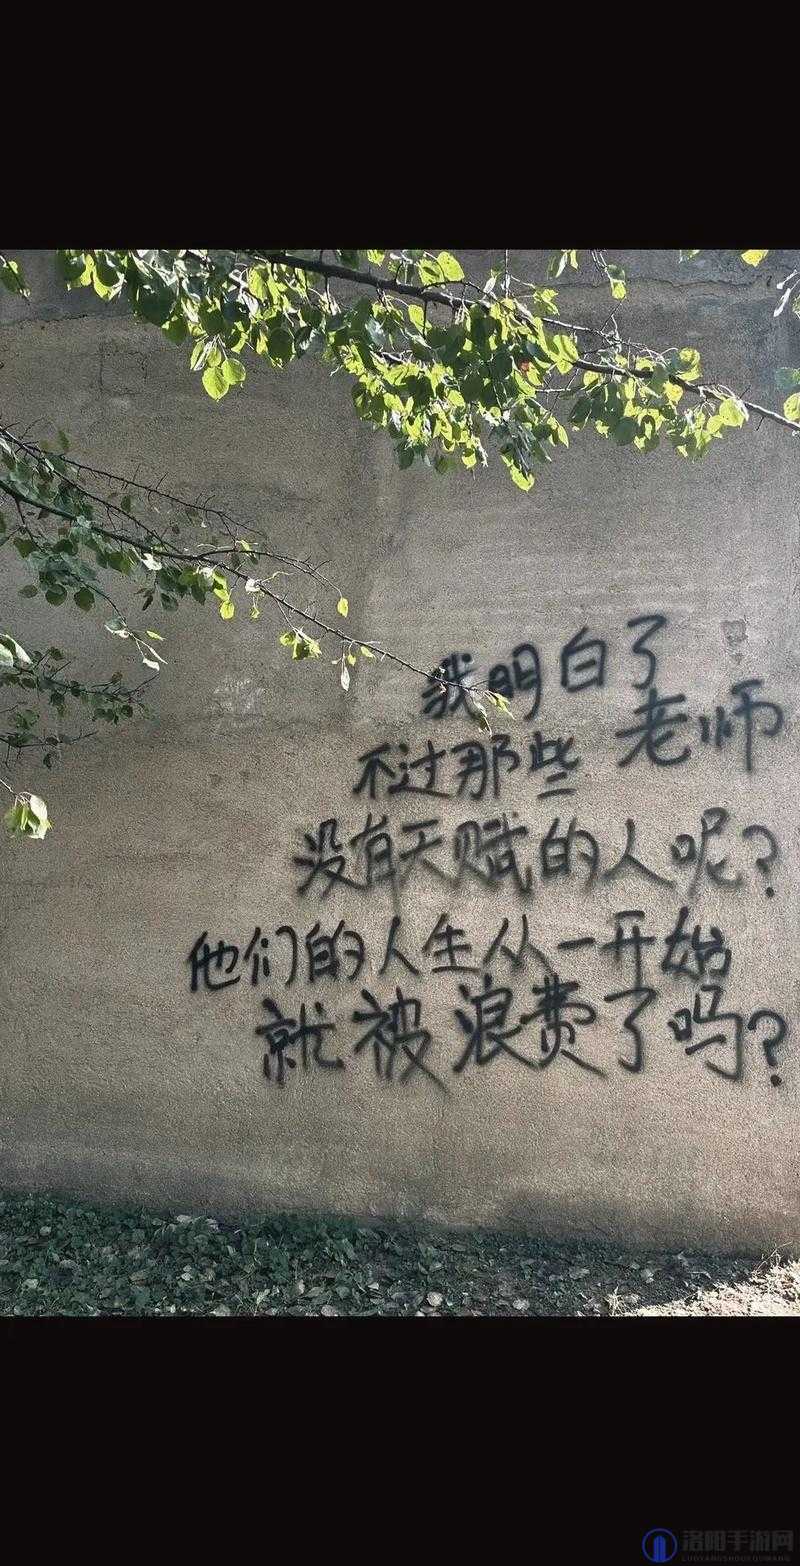 我明白了
老师
不过那些
没有天赋的人呢?
他们的人生从一开始
就被浪费了吗?
洛阳手游网
LUOYANGSHOUYOUWANG